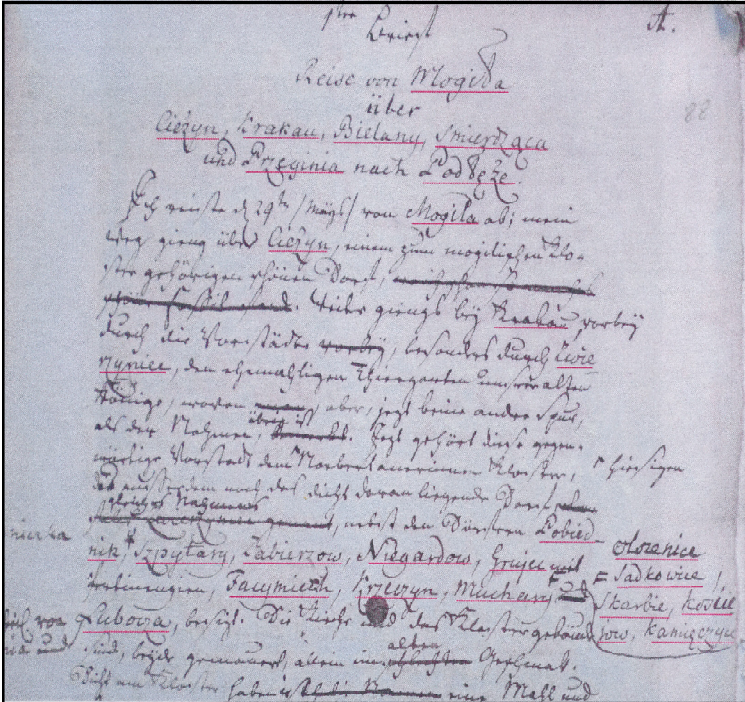 1ter Brief
A.
Reise von Mogiła
88
über
Cieżyn, Krakau, Bielany, Smierdząca
und Przeginia nach Podłęże.
Ich reiste d 29ten /Mäys/ von Mogiła ab; mein
Weg gieng über Cieżyn, einem zum mogilischen Klo-
ster gehörigen schönen Dorf,
Weiter giengs bey Krakau vorbey
durch die Vorstädte vorbey, besonders durch Zwie
rzyniec, dem ehemahligen Thiergarten unserer alten
Könige, wovon aber, jezt keine andre Spur,
als der Nahmen, übrig ist. Jezt gehört diese gegen-
wärtige Vorstadt dem Norbertanerinnen Kloster,
hiesigen
das ausserdem noch das dicht daran liegende Dorf
gleiches Nahmens
nebst den Dörfern Bobied
nik, Szpytary, Zabierzow, Niegardow, mit
Olszenice
Sadkowice,
Skarbie, Koście
Faymiech, Krzeczyn, Muchary, und
Łubowa, besizt. Die Kirche und das Klostergebäude
sind, beyde gemauert, allein im alten Geschmak.
Dicht am Kloster haben eine Mahl und